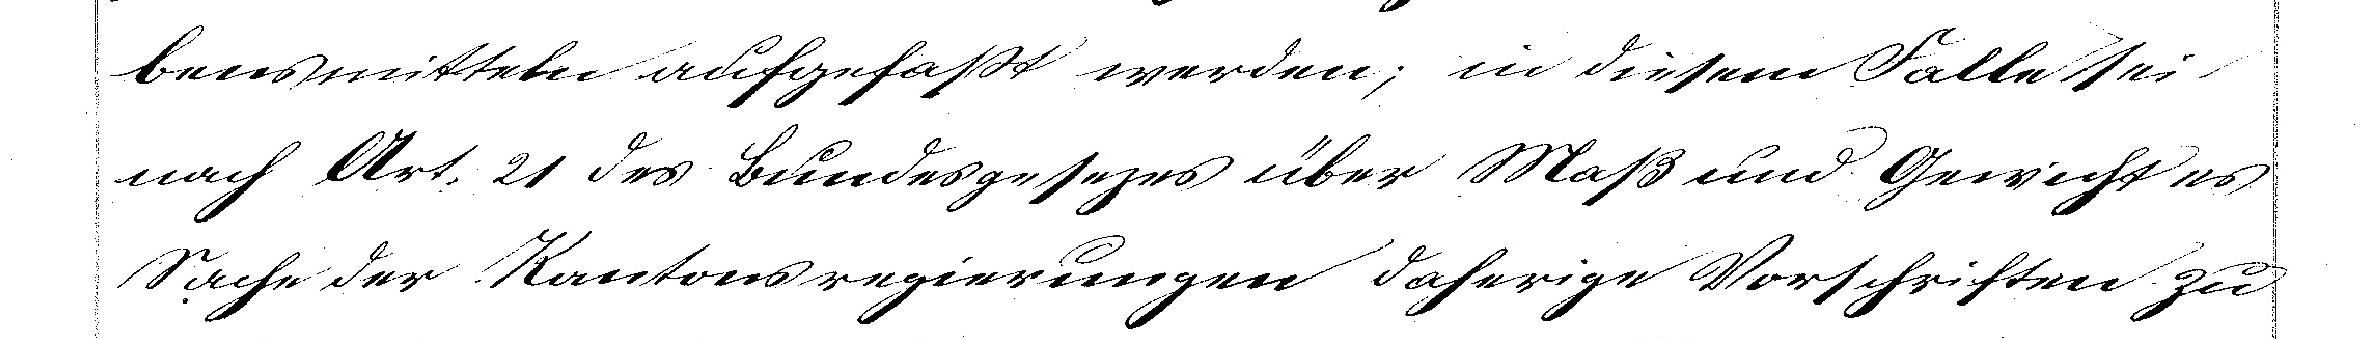 bensmitteln aufgefaßt werden; in diesem Falle sei
nach Art. 21 des Bundesgesezes über Maß und Gewicht es
Sache der Kantonsregierungen daherige Vorschriften zu